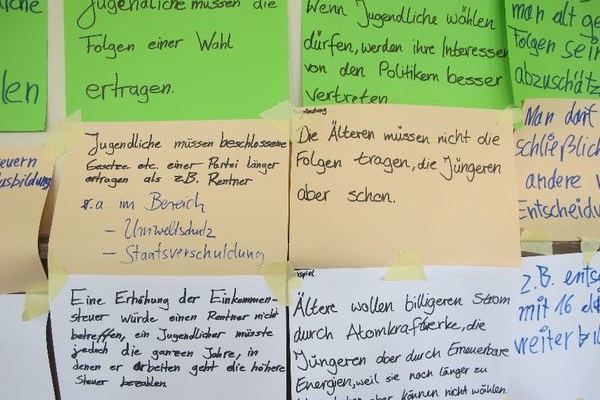 Jugendliche müssen die
Folgen einer Wahl
ertragen.
Wenn Jugendliche wählen
dürfen, werden ihre Interessen
von den Politikern besser
vertreten
man alt ge
Folgen sein
abzuschätz
len
Jugendliche müssen beschlossene
Gesetze etc. einer Partei länger
ertragen als z.B. Rentner
v.a. im Bereich
- Umweltschutz
- Staatsverschuldung
Die Älteren müssen nicht die
Folgen tragen, die Jüngeren
aber schon.
Man darf
schließlich
andere
Entscheidu
euern
usbildung
Eine Erhöhung der Einkommen-
steuer würde einen Rentner nicht
betreffen, ein Jugendlicher müsste
jedoch die ganzen Jahre, in
denen er arbeiten geht die höhere
Steuer bezahlen.
ispiel
Ältere wollen billigeren Strom
durch Atomkraftwerke, die
Jüngeren aber durch Erneuerbare
Energien, weil sie noch länger zu
aber können nicht wählen.
z.B. ents
mit 16
weiterbil